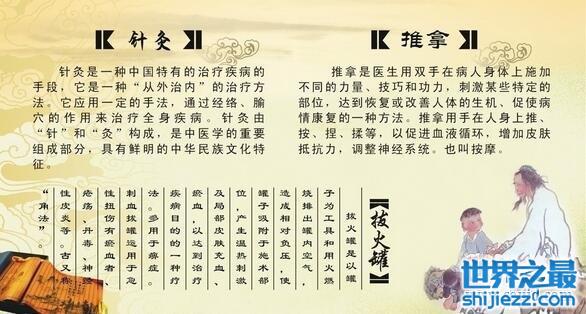 【针灸】
针灸是一种中国特有的治疗疾病的
手段，它是一种“从外治内”的治疗方
法。它应用一定的手法，通过经络、腧
穴的作用来治疗全身疾病。针灸由
“针”和“灸”构成，是中医学的重要
组成部分，具有鲜明的中华民族文化特
征。
【推拿】
推拿是医生用双手在病人身体上施加
不同的力量、技巧和功力，刺激某些特定的
部位，达到恢复或改善人体的生机、促使病
情康复的一种方法。推拿用手在人身上推、
按、捏、揉等，以促进血液循环，增加皮肤
抵抗力，调整神经系统。也叫按摩。
【拔火罐】
拔火罐是以罐
子为工具和用火燃
烧排出罐内空气，
造成相对负压，使
罐子吸附于施术部
位，产生温热刺激
及局部皮肤充血、
瘀血，以达到治疗
疾病目的的一种疗
法。多用于痹症。
刺血拔罐运用于急
性扭伤有瘀血者、
疮疡、丹毒、神经
性皮炎等。古又称
“角法”。
世界之最
shijiezz.com